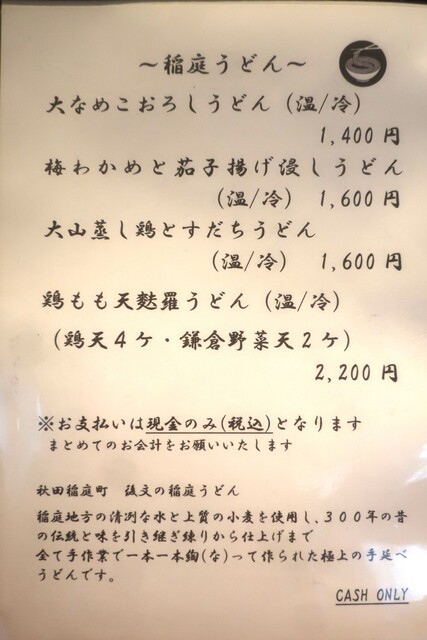 ～稲庭うどん～
大なめこおろしうどん(温/冷)
1,400円
梅わかめと茄子揚げ浸しうどん
(温/冷) 1,600円
大山蒸し鶏とすだちうどん
(温/冷) 1,600円
鶏もも天麩羅うどん(温/冷)
(鶏天4ケ・鎌倉野菜天2ケ)
2,200円
※お支払いは現金のみ(税込)となります
まとめてのお会計をお願いいたします
秋田稲庭町 後文の稲庭うどん
稲庭地方の清冽な水と上質の小麦を使用し、300年の昔
の伝統と味を引き継ぎ練りから仕上げまで
全て手作業で一本一本綯(な)って作られた極上の手延べ
うどんです。
CASH ONLY